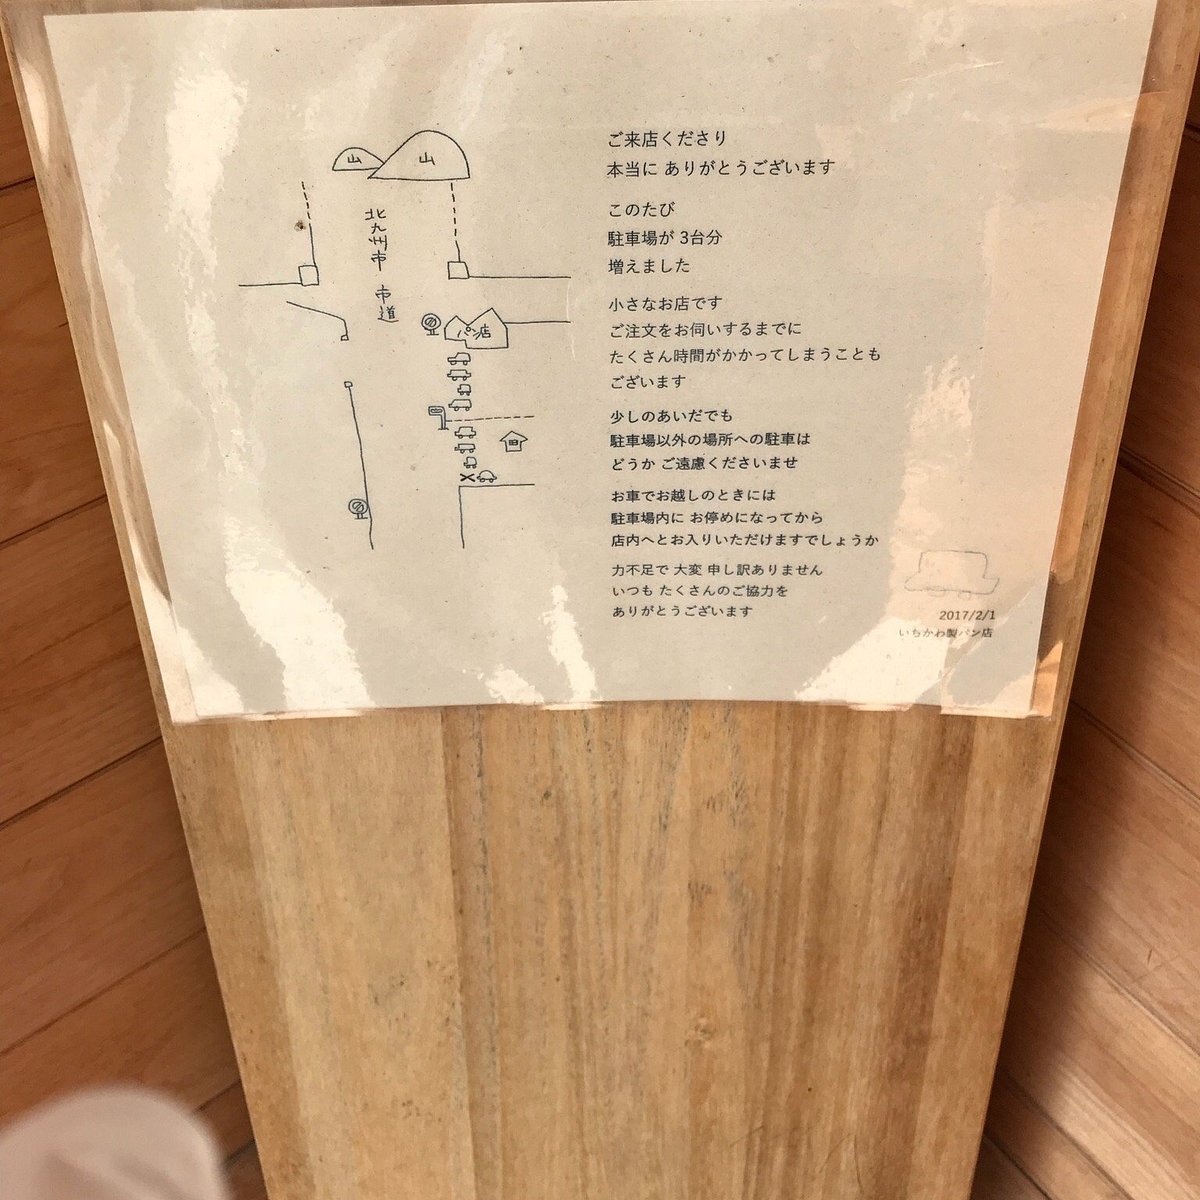 山
山
北九州市 市道
パン店
ご来店くださり
本当に ありがとうございます
このたび
駐車場が 3台分
増えました
小さなお店です
ご注文をお伺いするまでに
たくさん時間がかかってしまうことも
ございます
少しのあいだでも
駐車場以外の場所への駐車は
どうか ご遠慮くださいませ
お車でお越しのときには
駐車場内に お停めになってから
店内へとお入りいただけますでしょうか
力不足で 大変 申し訳ありません
いつも たくさんのご協力を
ありがとうございます
2017/2/1
いちかわ製パン店